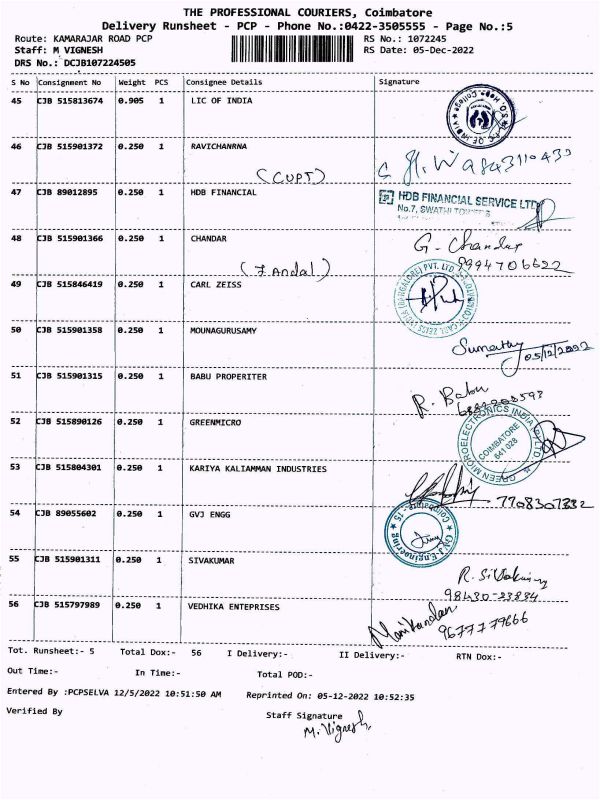 THE PROFESSIONAL COURIERS, Coimbatore
Delivery Runsheet - PCP - Phone No.:0422-3505555 - Page No.:5
Route: KAMARAJAR ROAD PCP RS No.: 1072245
Staff: M VIGNESH RS Date: 05-Dec-2022
DRS No.: DCJB107224505
S No Consignment No Weight PCS Consignee Details Signature
45 CJB 515813674 0.905 1 LIC OF INDIA
46 CJB 515901372 0.250 1 RAVICHANRNA
(CUPT)
47 CJB 89012895 0.250 1 HDB FINANCIAL
HDB FINANCIAL SERVICE LTD
No.7, SWATHI TOWERS
48 CJB 515901366 0.250 1 CHANDAR G. Chandar
9994706622
(J.Andal)
49 CJB 515846419 0.250 1 CARL ZEISS
50 CJB 515901358 0.250 1 MOUNAGURUSAMY
Sumathy 05/12/2022
51 CJB 515901315 0.250 1 BABU PROPERITER
R. Babu
52 CJB 515890126 0.250 1 GREENMICRO
GREEN MICROELECTRONICS INDIA (P) LTD
COIMBATORE
641 028
53 CJB 515804301 0.250 1 KARIYA KALIAMMAN INDUSTRIES
7708307332
54 CJB 89055602 0.250 1 GVJ ENGG
GVJ Engineering Coimbatore-15
55 CJB 515901311 0.250 1 SIVAKUMAR
R. Sivakumar
98430-23834
56 CJB 515797989 0.250 1 VEDHIKA ENTEPRISES
Manikandan
9677779666
Tot. Runsheet:- 5 Total Dox:- 56 I Delivery:- II Delivery:- RTN Dox:-
Out Time:- In Time:- Total POD:-
Entered By :PCPSELVA 12/5/2022 10:51:50 AM Reprinted On: 05-12-2022 10:52:35
Verified By Staff Signature
M. Vignesh